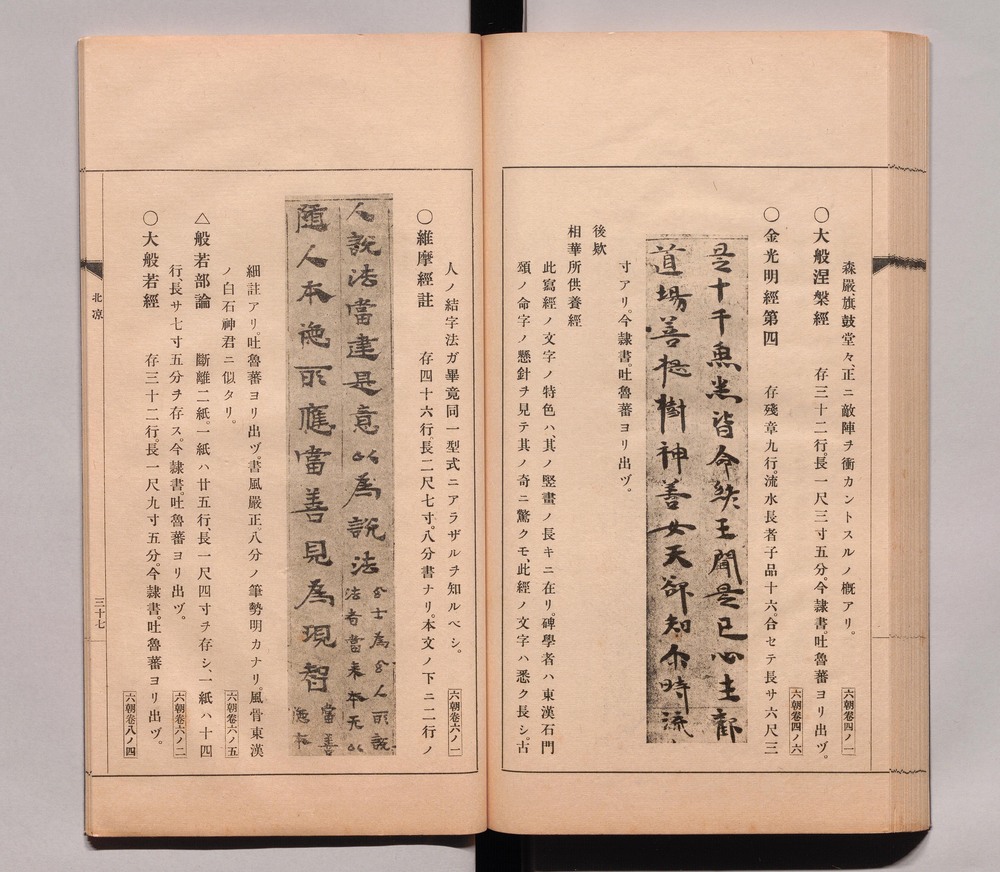 森嚴旗鼓堂々、正ニ敵陣ヲ衝カントスルノ概アリ。
六朝卷四ノ一
〇大般涅槃經　存三十二行。長一尺三寸五分。今隷書。吐魯蕃ヨリ出ヅ。
六朝卷四ノ六
〇金光明經第四　存殘章九行。流水長者子品十六。合セテ長サ六尺三
是十千魚悉皆命終王聞是已心生
道場菩提樹神善女天卻知尒時流
寸アリ。今隷書。吐魯蕃ヨリ出ヅ。
後欵
相華所供養經
此寫經ノ文字ノ特色ハ、其ノ竪畫ノ長キニ在リ。碑學者ハ東漢石門
頌ノ命字ノ懸針ヲ見テ其ノ奇ニ驚クモ、此經ノ文字ハ悉ク長シ。古
人ノ結字法ガ畢竟同一型式ニアラザルヲ知ルベシ。
六朝卷六ノ一
〇維摩經註　存四十六行、長二尺七寸。八分書ナリ。本文ノ下ニ二行ノ
人說法當建是意以爲說法
隨人本施所應當善見爲現智
細註アリ。吐魯蕃ヨリ出ヅ。書風嚴正。八分ノ筆勢明カナリ。風骨東漢
六朝卷六ノ五
ノ白石神君ニ似タリ。
△般若部論　斷離二紙。一紙ハ廿五行、長一尺四寸ヲ存シ、一紙ハ十四
六朝卷六ノ二
行、長サ七寸五分ヲ存ス。今隷書。吐魯蕃ヨリ出ヅ。
〇大般若經　存三十二行。長一尺九寸五分。今隷書。吐魯蕃ヨリ出ヅ。
六朝卷八ノ四
北凉
三十七